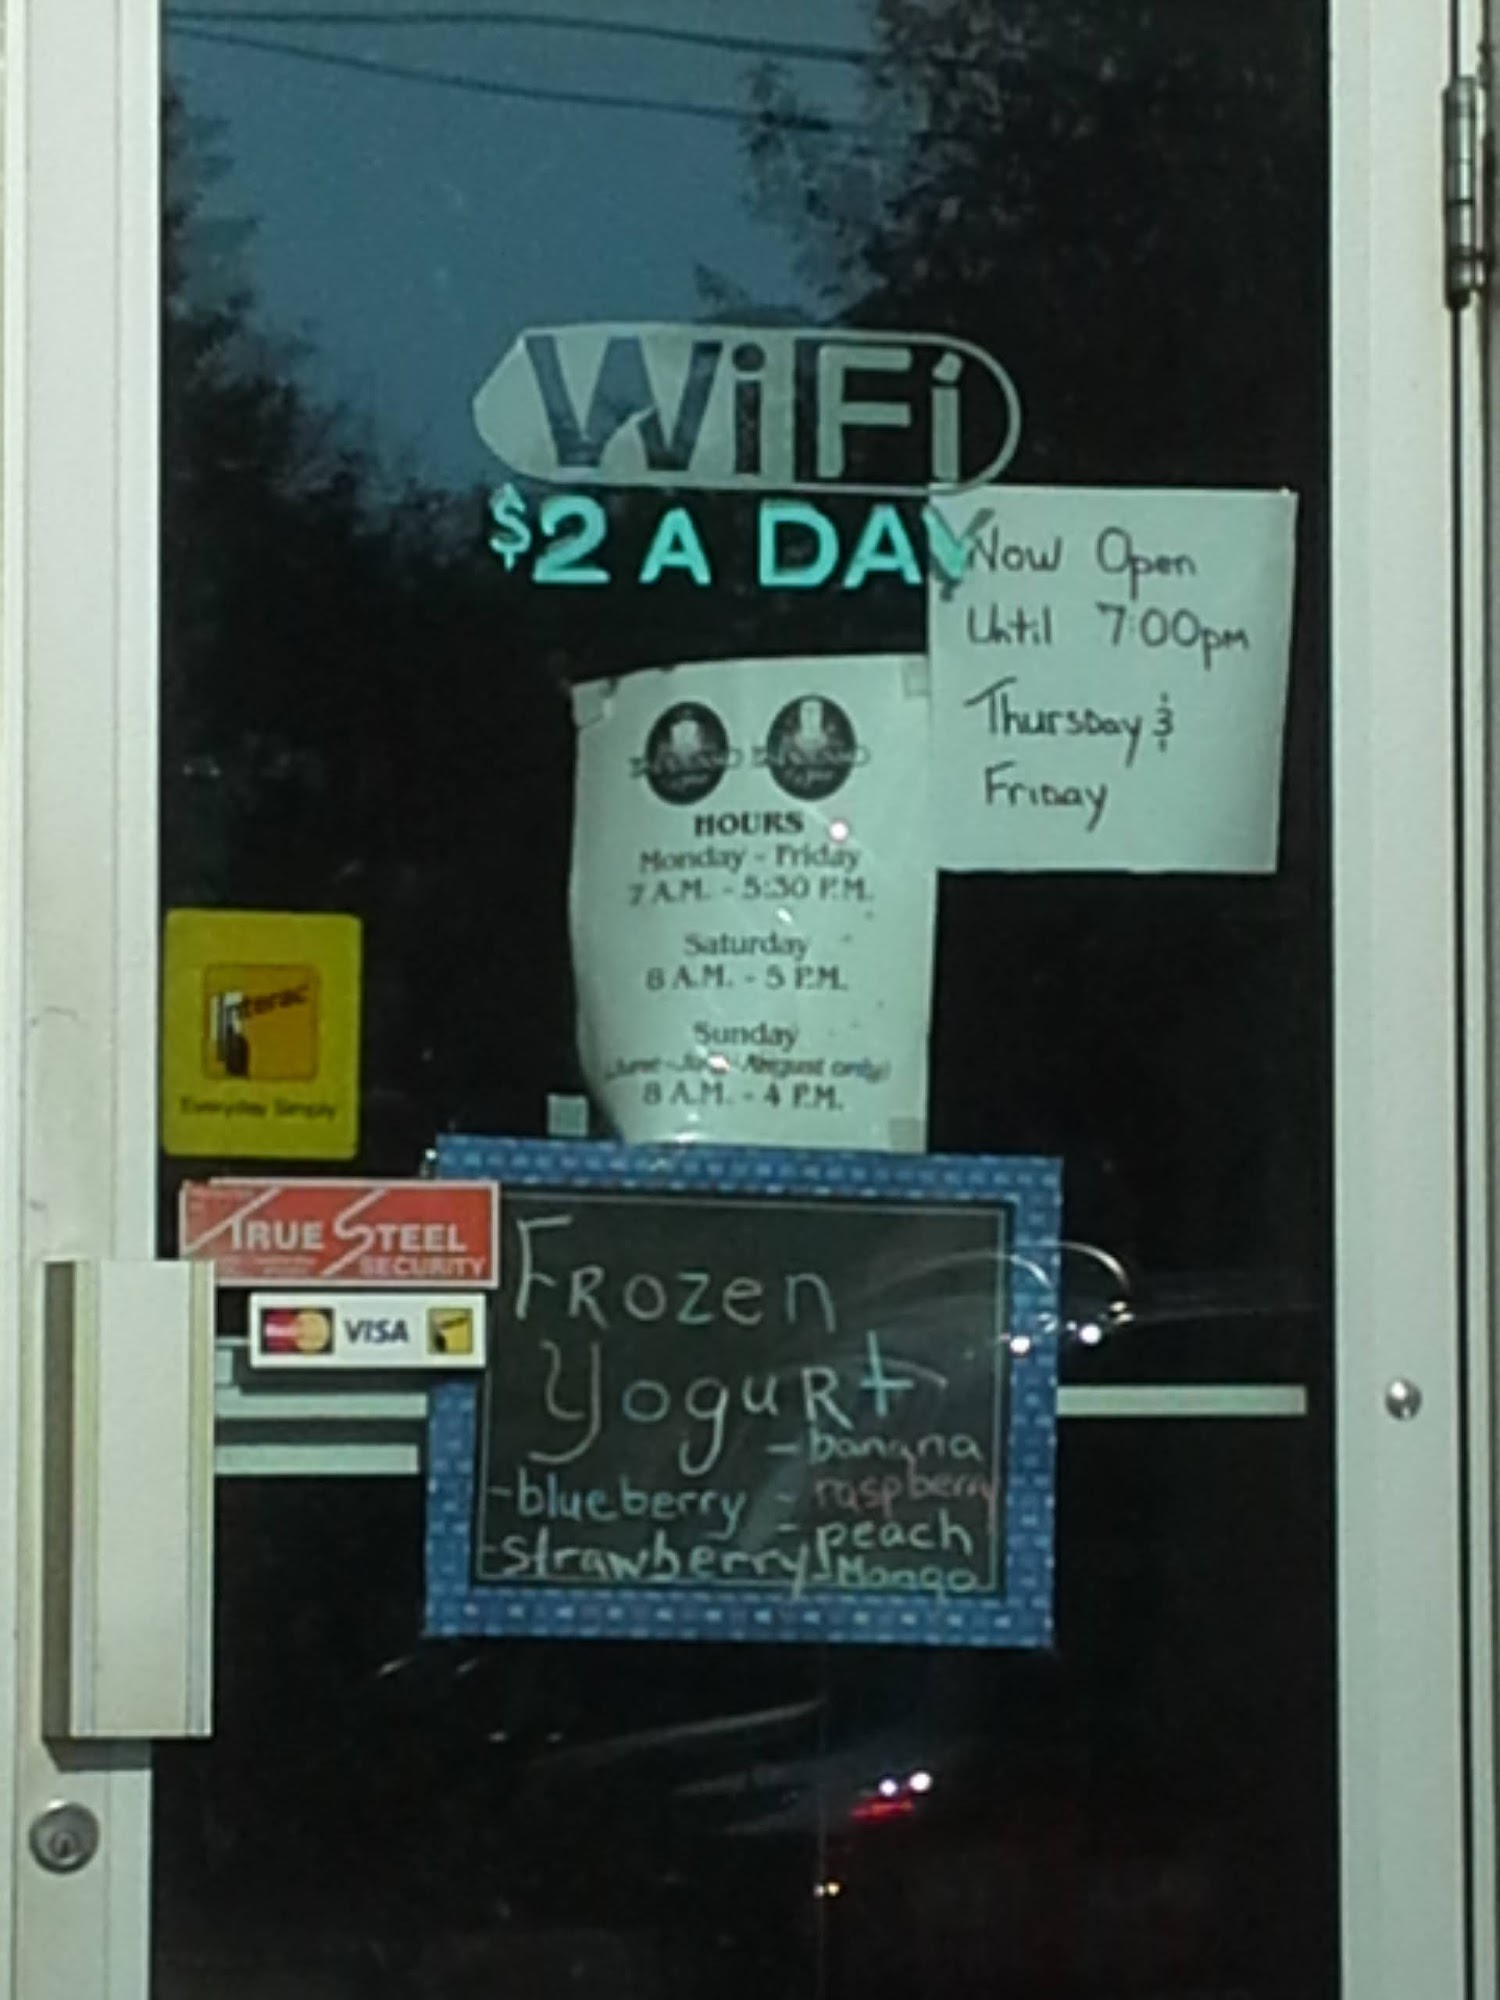 WiFi
$2 A DAY
Now Open
Until 7:00pm
Thursday &
Friday
HOURS
Monday - Friday
7 A.M. - 5:30 P.M.
Saturday
8 A.M. - 5 P.M.
Sunday
August only)
8 A.M. - 4 P.M.
Interac
Everyday Simply
TRUE STEEL
SECURITY
VISA
Frozen
Yogurt
- banana
- blueberry - raspberry
- peach
- strawberry - Mango